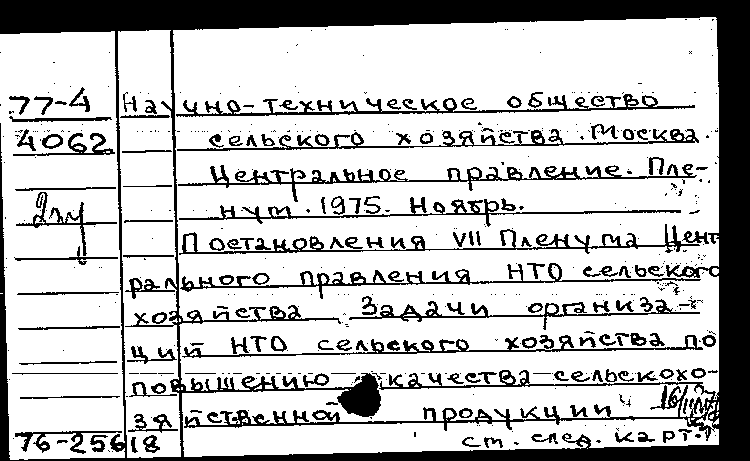 77-4 Научно-техническое общество
4062 сельского хозяйства. Москва.
Центральное правление. Пле-
нум. 1975. Ноябрь.
Постановления VII Пленума Цент
рального правления НТО сельского
хозяйства Задачи организа-
ций НТО сельского хозяйства по
повышению качества сельскохо-
зяйственной продукции"
76-25618 см. след. карт.